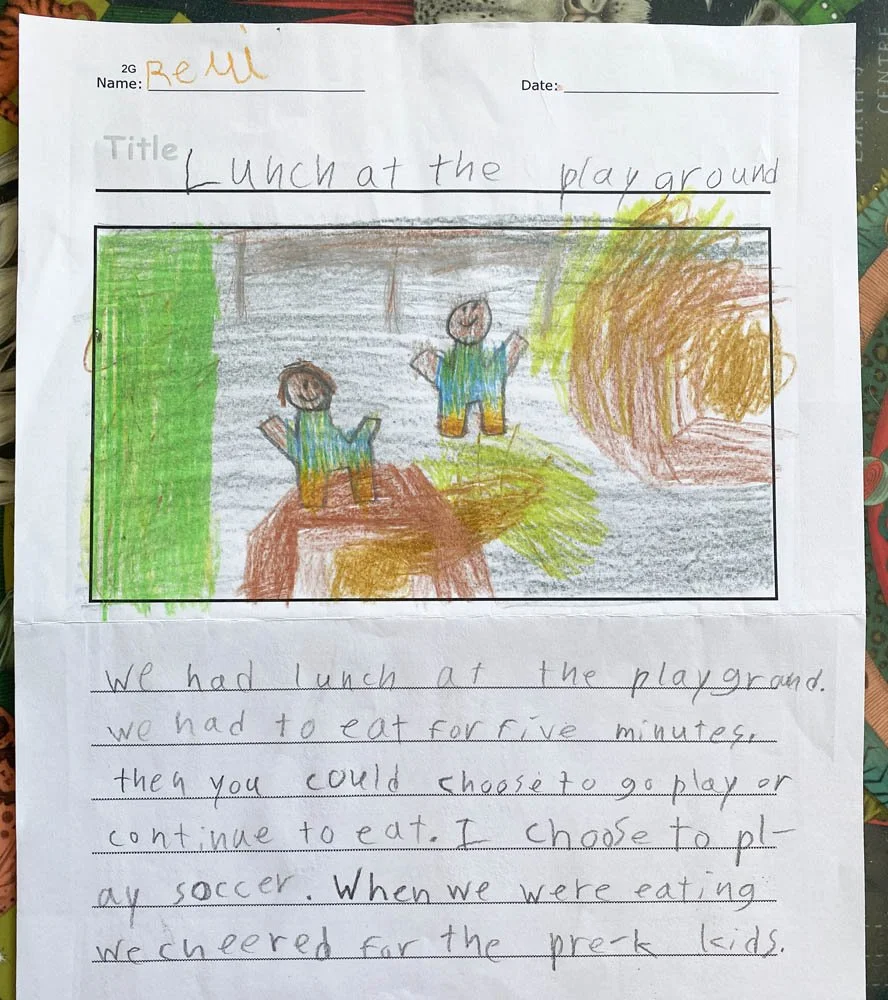 2G
Name: Remi
Date:
Title Lunch at the playground
we had lunch at the playgrand.
we had to eat for five minutes.
then you could choose to go play or
continue to eat. I choose to pl-
ay soccer. When we were eating
we cheered for the pre-k kids.
EARTH'S
CENTRE